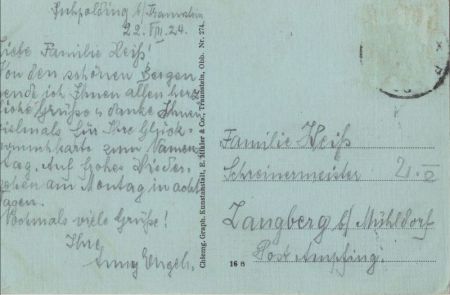 Ruhpolding b/Traunstein
22. VIII. 24.
Liebe Familie Heiß!
Von den schönen Bergen
sende ich Ihnen allen herz-
liche Grüße u. danke Ihnen
vielmals für Ihre Glück-
wunschkarte zum Namens-
tag. Auf frohes Wieder-
sehen am Montag in acht
Tagen.
Nochmals viele Grüße!
Ihre
Anny Engel.
Chiemg. Graph. Kunstanstalt, E. Mikler & Co., Traunstein, Obb. Nr. 274.
16 B
Familie Heiß
Schreinermeister
Zangberg b/ Mühldorf
Post Ampfing.